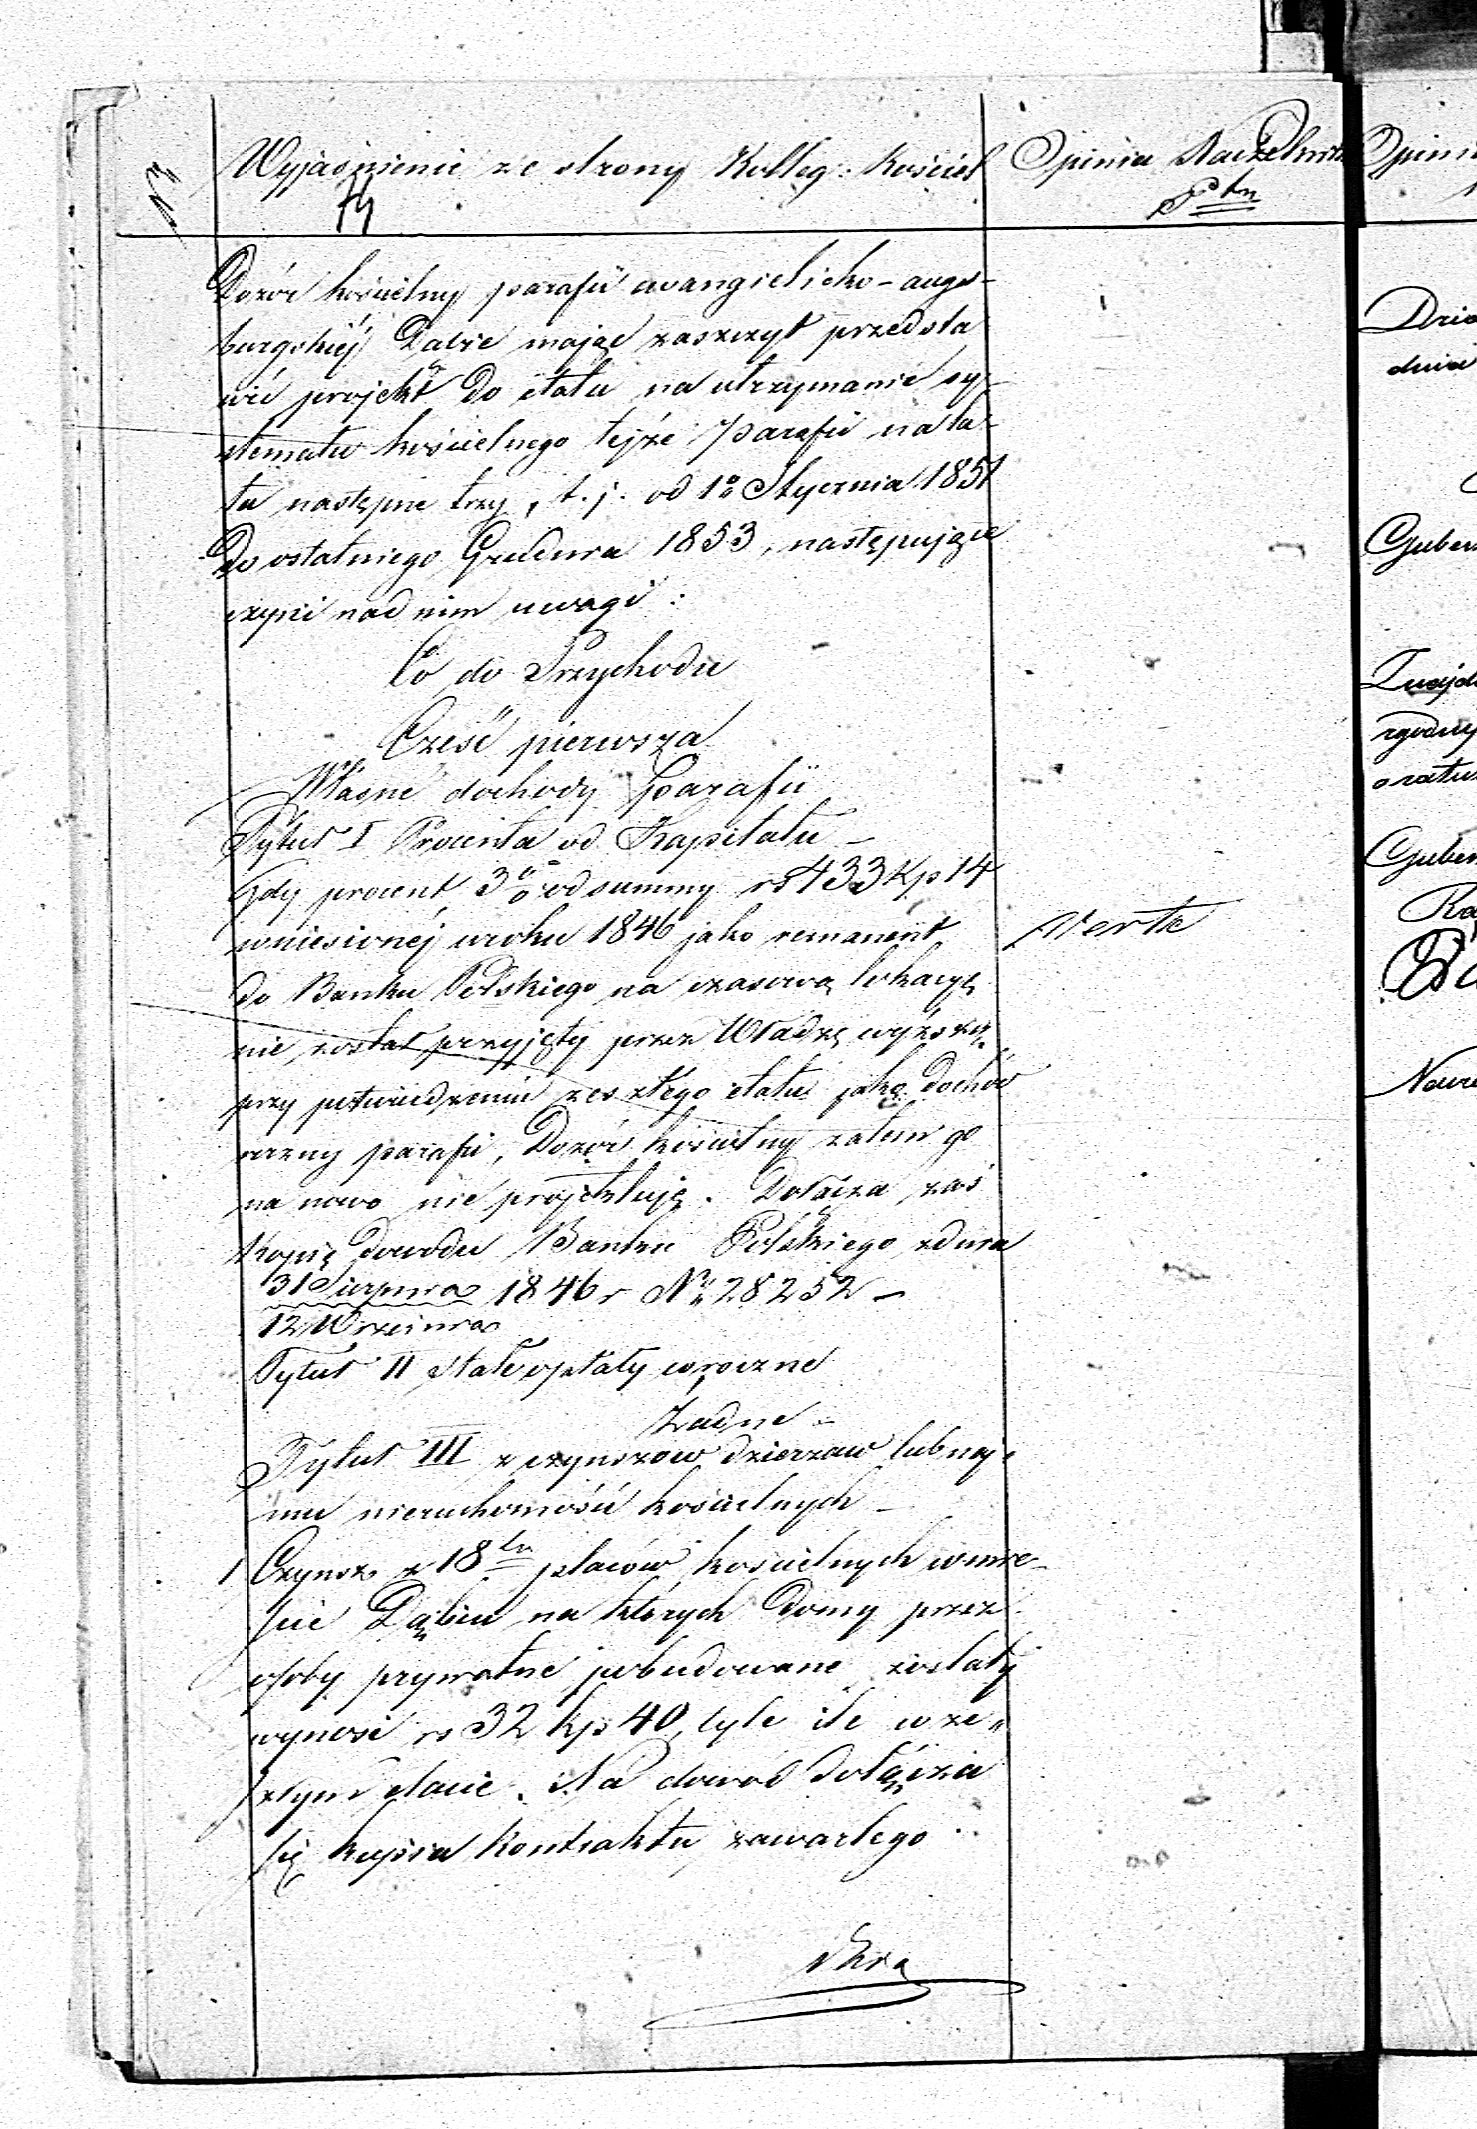 Wyjaśnienie ze strony Kolleg: Kościel
Opinia Naczelnika
Ptu
Dozór kościelny parafii ewangielicko-augs-
burgskiéj Dąbie mając zaszczyt przedsta
wić projekt do etatu na utrzymanie sy-
stematu kościelnego tejże parafii na la-
ta następne trzy, t. j. od 1o Stycznia 1851
do ostatniego Grudnia 1853, następujące
czyni nad nim uwagi:
Co do Przychodu
Cześć pierwsza
Własne dochody Parafii
Tytuł I Procenta od Kapitału -
Gdy procent 3% od summy rs 433 kp 14
wniesionéj w roku 1846 jako remanent
do Banku Polskiego na czasową lokacyę
nie został przyjęty przez Władzę wyższą,
przy potwierdzeniu zeszłego etatu jako dochód
roczny parafii, Dozór kościelny zatem go
na nowo nie projektuję. Dołącza zaś
Kopię dowodu Banku Polskiego z dnia
31 Sierpnia 1846 r No 28252 -
12 Września
Tytuł II Stałe opłaty coroczne
Żadne -
Tytuł III z czynszów dzierzaw lub naj-
mu nieruchomości kościelnych -
1 Czynsz z 18tu placów kościelnych w mie-
ście Dąbiu na których domy przez
osoby prywatne pobudowane zostały
wynosi rs 32 kp 40, tyle ile w ze„
szłym etacie. Na dowód dołącza
się kopia kontraktu zawartego
Verte